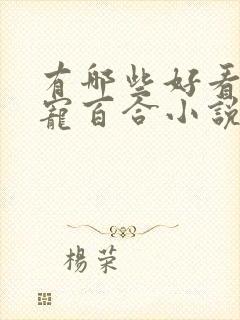 有哪些好看
寵百合小說
楊榮